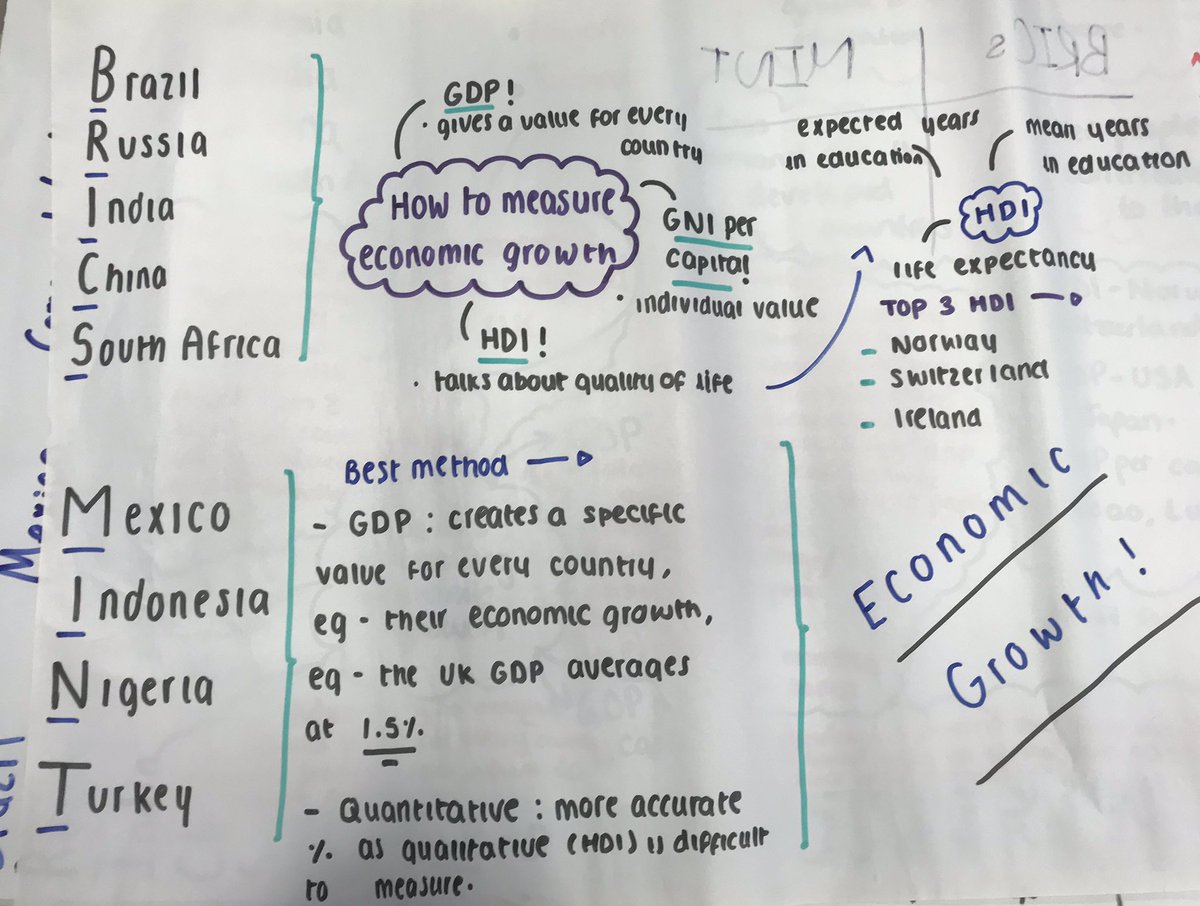 Brazil
Russia
India
China
South Africa
GDP!
· gives a value for every
country
How to measure
economic growth
GNI per
capita!
· individual value
HDI!
· talks about quality of life
BRICs | MINT
expected years
in education
mean years
in education
HDI
life expectancy
TOP 3 HDI
- Norway
- Switzerland
- Ireland
Mexico
Indonesia
Nigeria
Turkey
Best method
- GDP : creates a specific
value for every country,
eg - their economic growth,
eg - the UK GDP averages
at 1.5%.
- Quantitative : more accurate
% as qualitative (HDI) is difficult
to measure.
Economic
Growth!